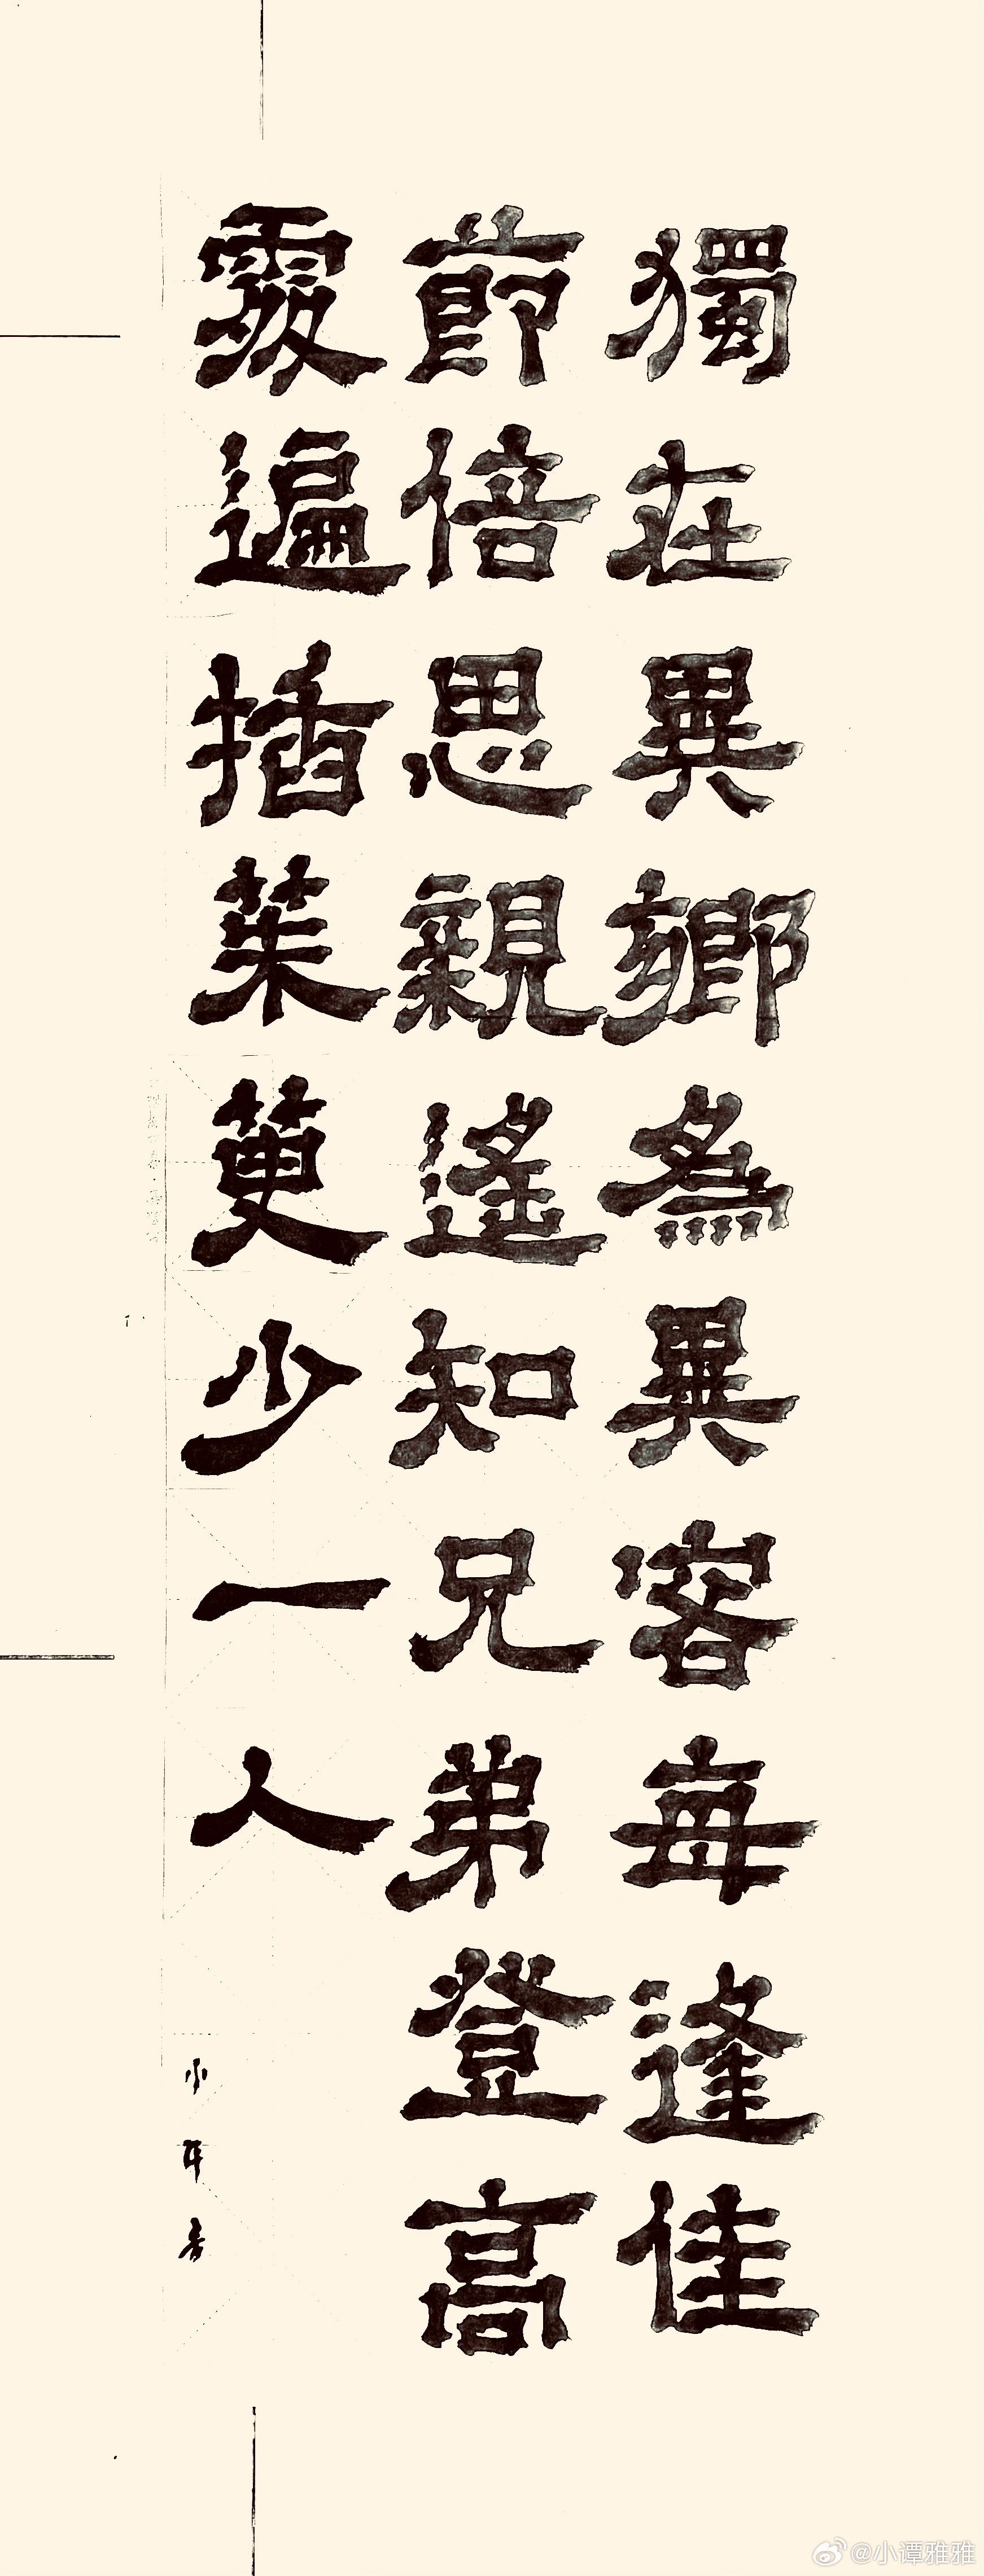 獨在異鄉為異客每逢佳
節倍思親遙知兄弟登高
處遍插茱萸少一人
@小谭雅雅